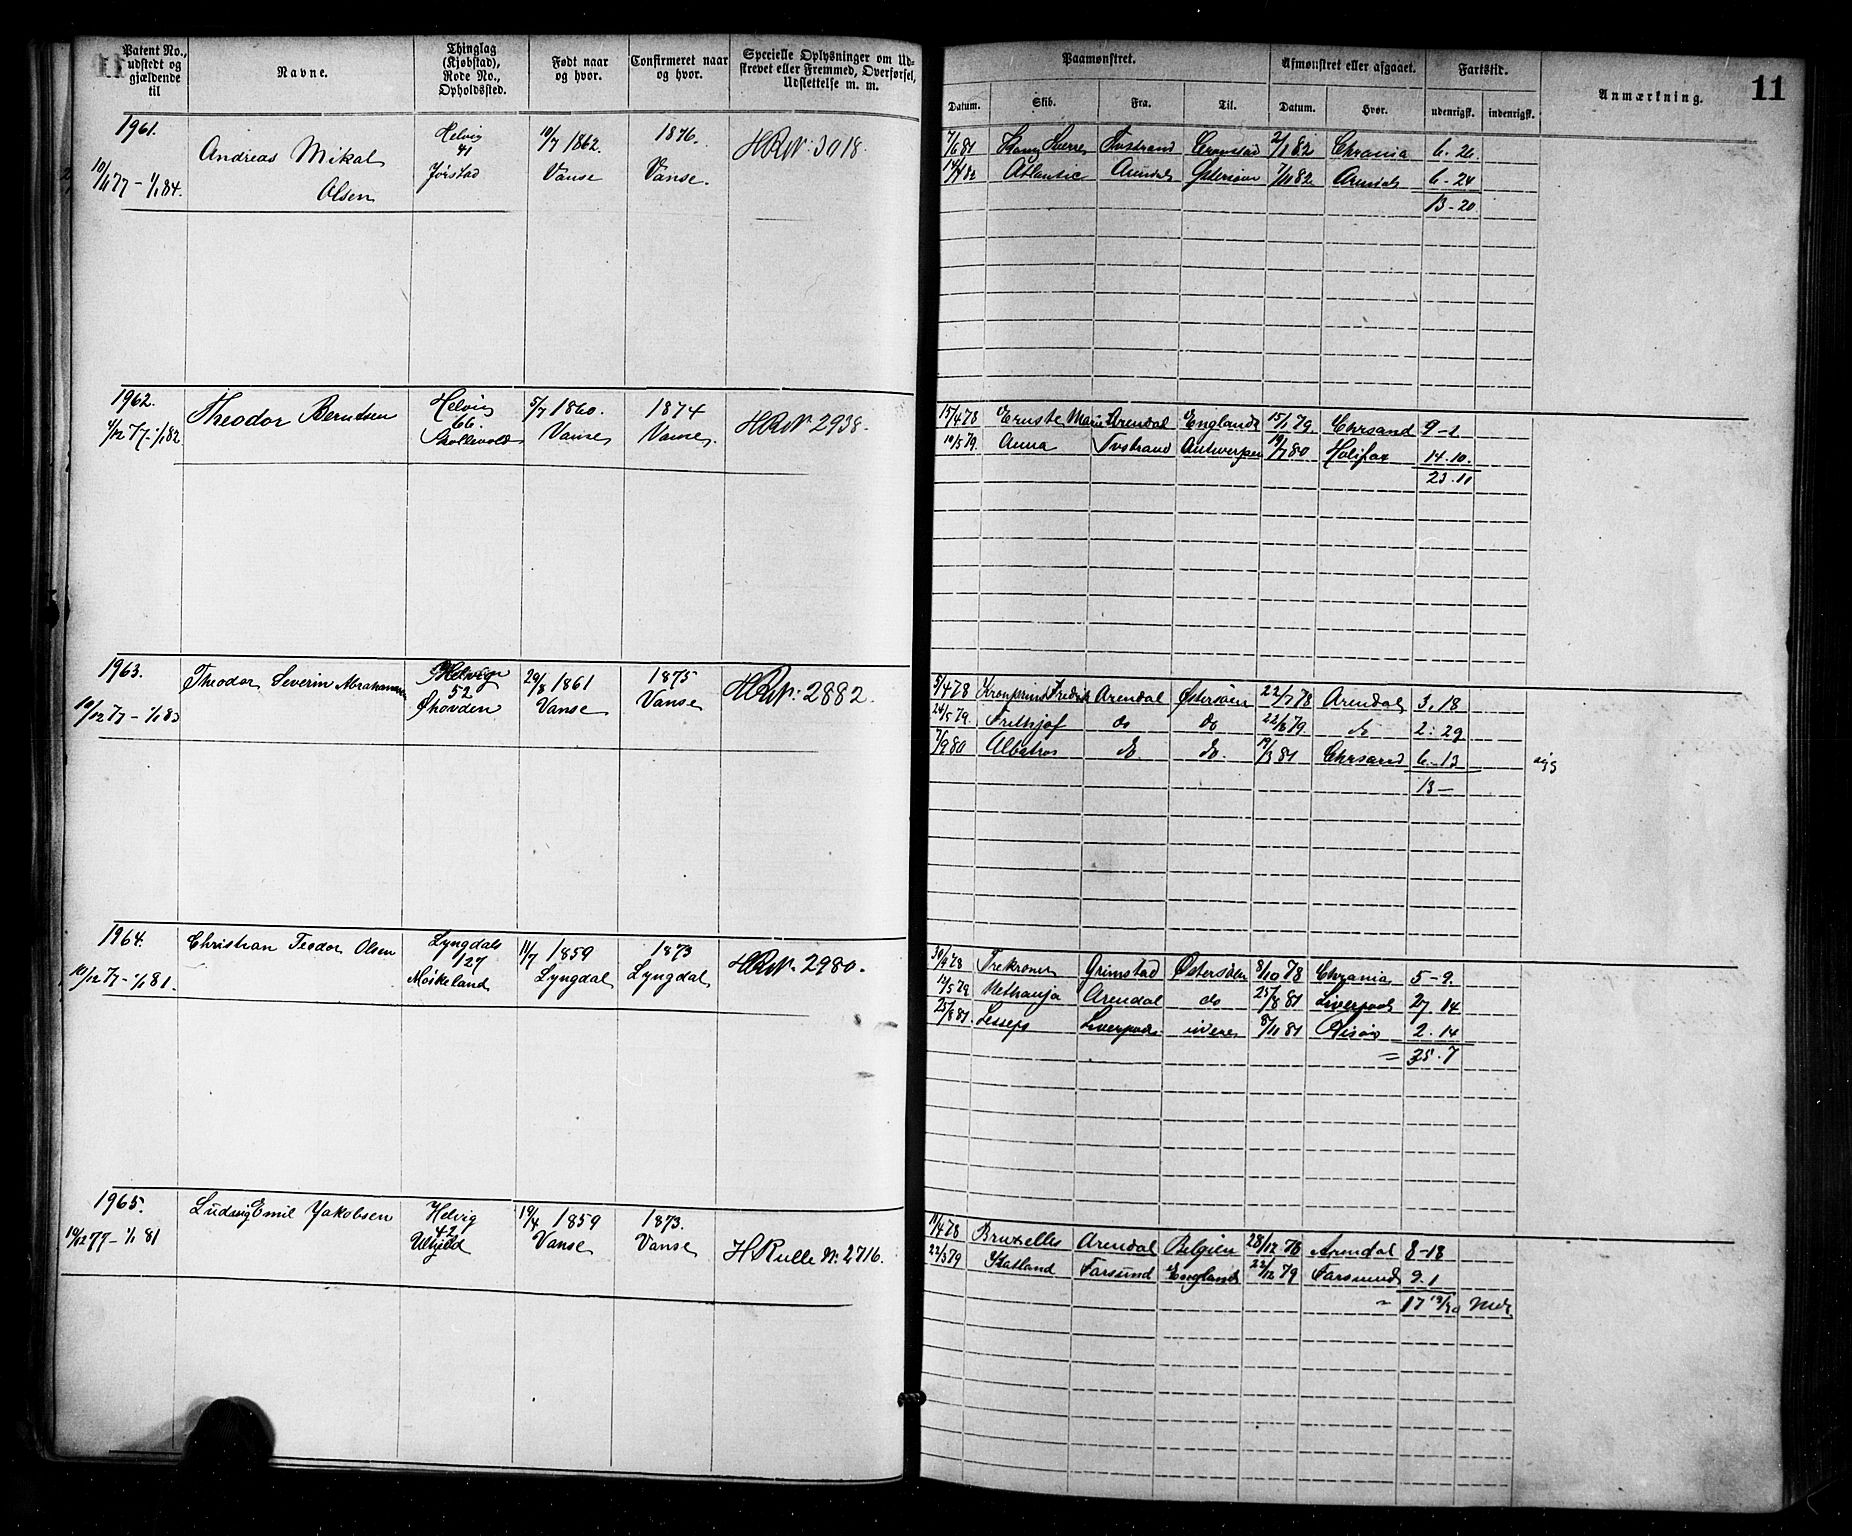 Patent No., udstedt og gjældende til
Navne.
Thinglag (Kjøbstad), Rode No., Opholdssted.
Født naar og hvor.
Confirmeret naar og hvor.
Specielle Oplysninger om Udstrevet eller Fremmed, Overførsel, Udslettelse m. m.
Paamønstret.
Afmønstret eller afgaaet.
Fartstid.
Anmærkning.
11
Datum.
Skib.
Fra.
Til.
Datum.
Hvor.
udenrigsk.
indenrigsk.
1961.
10/11 77 - 1/1 84.
Andreas Mikal
Olsen
Helvig
41
Jørstad
10/7 1862.
Vanse
1876.
Vanse.
HRN: 3018.
7/6 81
Tvestrand
2/1 82
Chrania
6. 26
14/4 82 Atlantic Arendal Østersøen 7/11 82 Arendal 6-24
13-20
1962.
4/12 77 - 1/1 82
Theodor Berntsen
Helvig
66.
5/7 1860.
Vanse
1874
Vanse.
HRN: 2938.
15/4 78 Ernste Marie Arendal England 15/1 79 Chrsand 9-1
10/5 79. Anna Tvestrand Antwerpen 19/7 80 Halifax 14.10.
23.11
1963.
10/12 77 - 1/1 83
Theodor Severin Abrahamsen
Helvig
52
Skovden
29/8 1861
Vanse
1875
Vanse
HRN: 2882.
5/4 78 Kronprins Fredrik Arendal Østersøen 22/7 78 Arendal 3. 18
24/5 79. Frithjof do do 22/8 79. do 2: 29
7/9 80 Albatros do do. 19/3 81 Chrsand 6-13
13 -
1964.
10/12 77 - 1/1 81.
Christian Teodor Olsen
Lyngdals
127
Møskeland
11/7 1859
Lyngdal
1873
Lyngdal
HRN. 2980.
30/4 78 Trekroner Grimstad Østersøen 8/10 78 Chrania 5-9.
12/5 79 Methanja Arendal do 25/8 81 Liverpool 27. 14
25/8 81. Lesseps Liverpool 8/11 81 Risør 2. 14
= 35.7
1965.
10/12 77 - 1/1 81
Ludvig Emil Jakobsen
Helvig
42
Ulgjeld
19/4 1859
Vanse
1873.
Vanse
H Rulle N: 2716.
11/4 78 Bruxelles Arendal Belgien 28/12 78 Arendal 8-18
22/3 79 Katland Farsund England 22/12 79 Farsund 9.1
= 17 19/30 Mdr